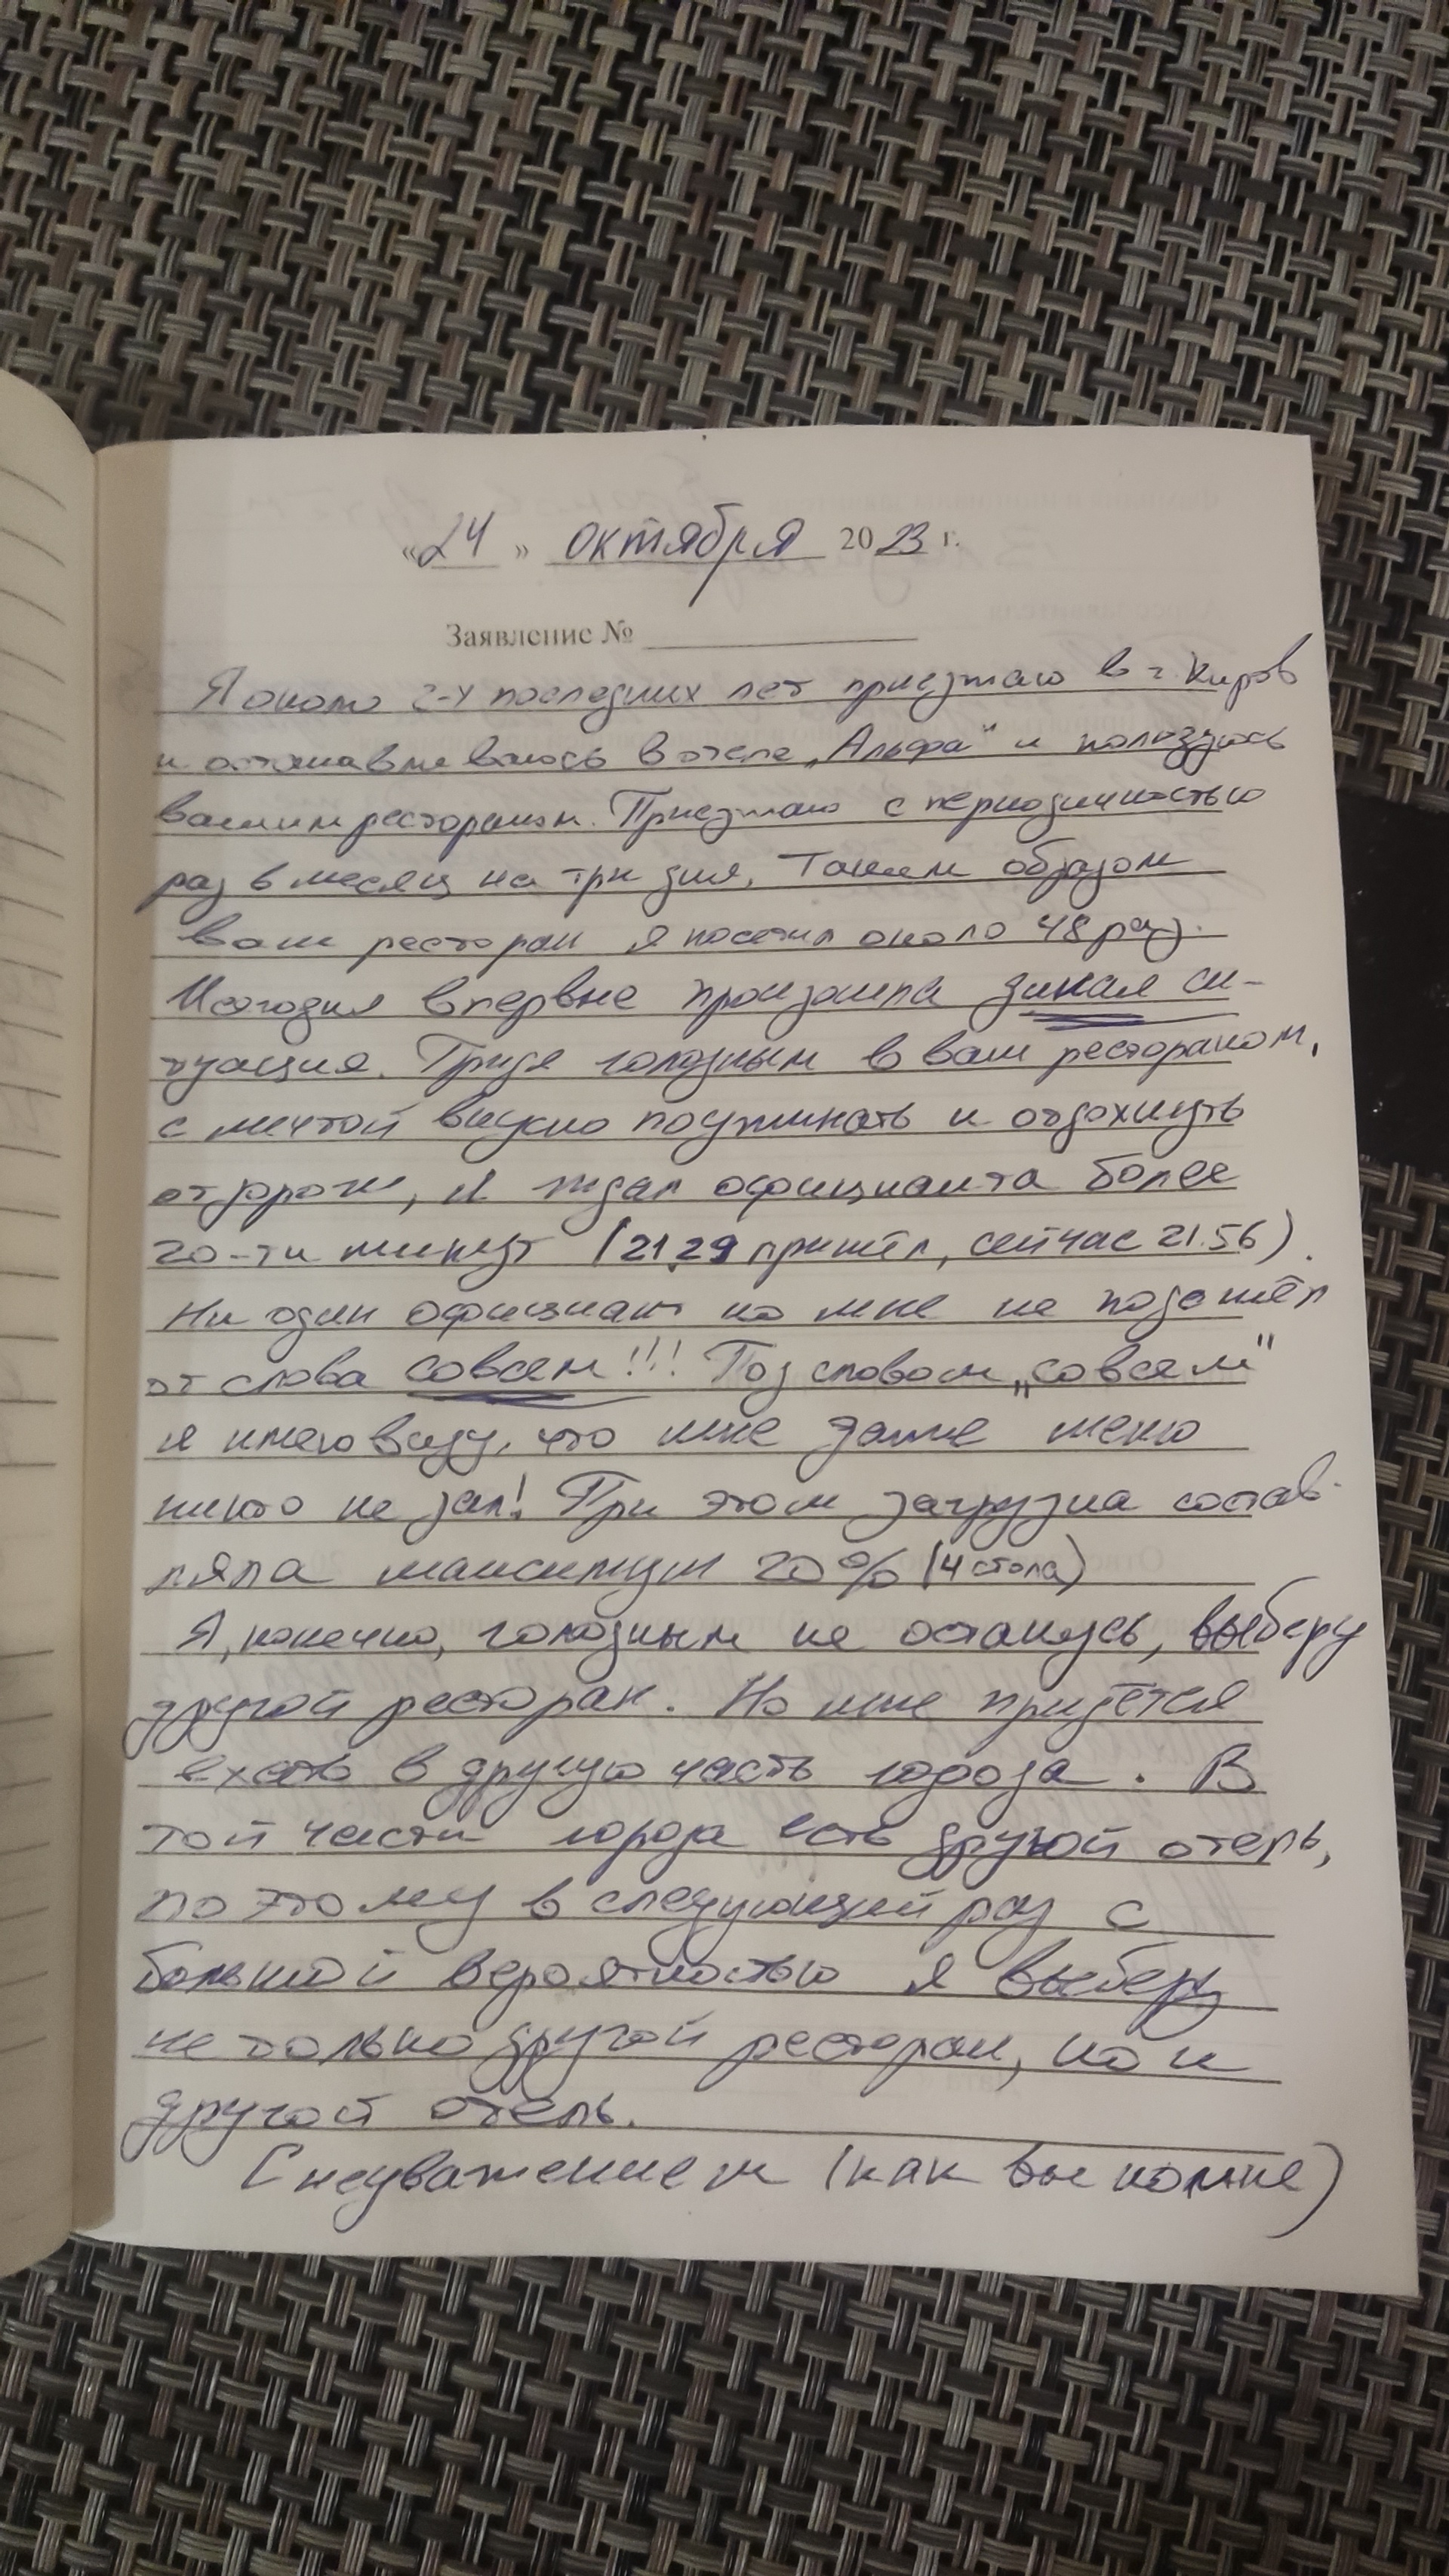 «24» октября 2023 г.
Заявление №
Я около 2-х последних лет приезжаю в г. Киров
и останавливаюсь в отеле „Альфа" и пользуюсь
вашим рестораном. Приезжаю с периодичностью
раз в месяц на три дня. Таким образом
ваш ресторан я посетил около 48 раз.
И сегодня впервые произошла дикая си-
туация. Придя голодным в ваш рестораном,
с мечтой вкусно поужинать и отдохнуть
от дороги, я ждал официанта более
20-ти минут (21.29 пришёл, сейчас 21.56).
Ни один официант ко мне не подошёл
от слова совсем!!! Под словом „совсем"
я имею ввиду, что мне даже меню
никто не дал! При этом загрузка состав-
ляла максимум 20% (4 стола)
Я, конечно, голодным не останусь, выберу
другой ресторан. Но мне придётся
ехать в другую часть города. В
той части города есть другой отель,
поэтому в следующий раз с
большой вероятностью я выберу
не только другой ресторан, но и
другой отель.
С неуважением (как вы ко мне)